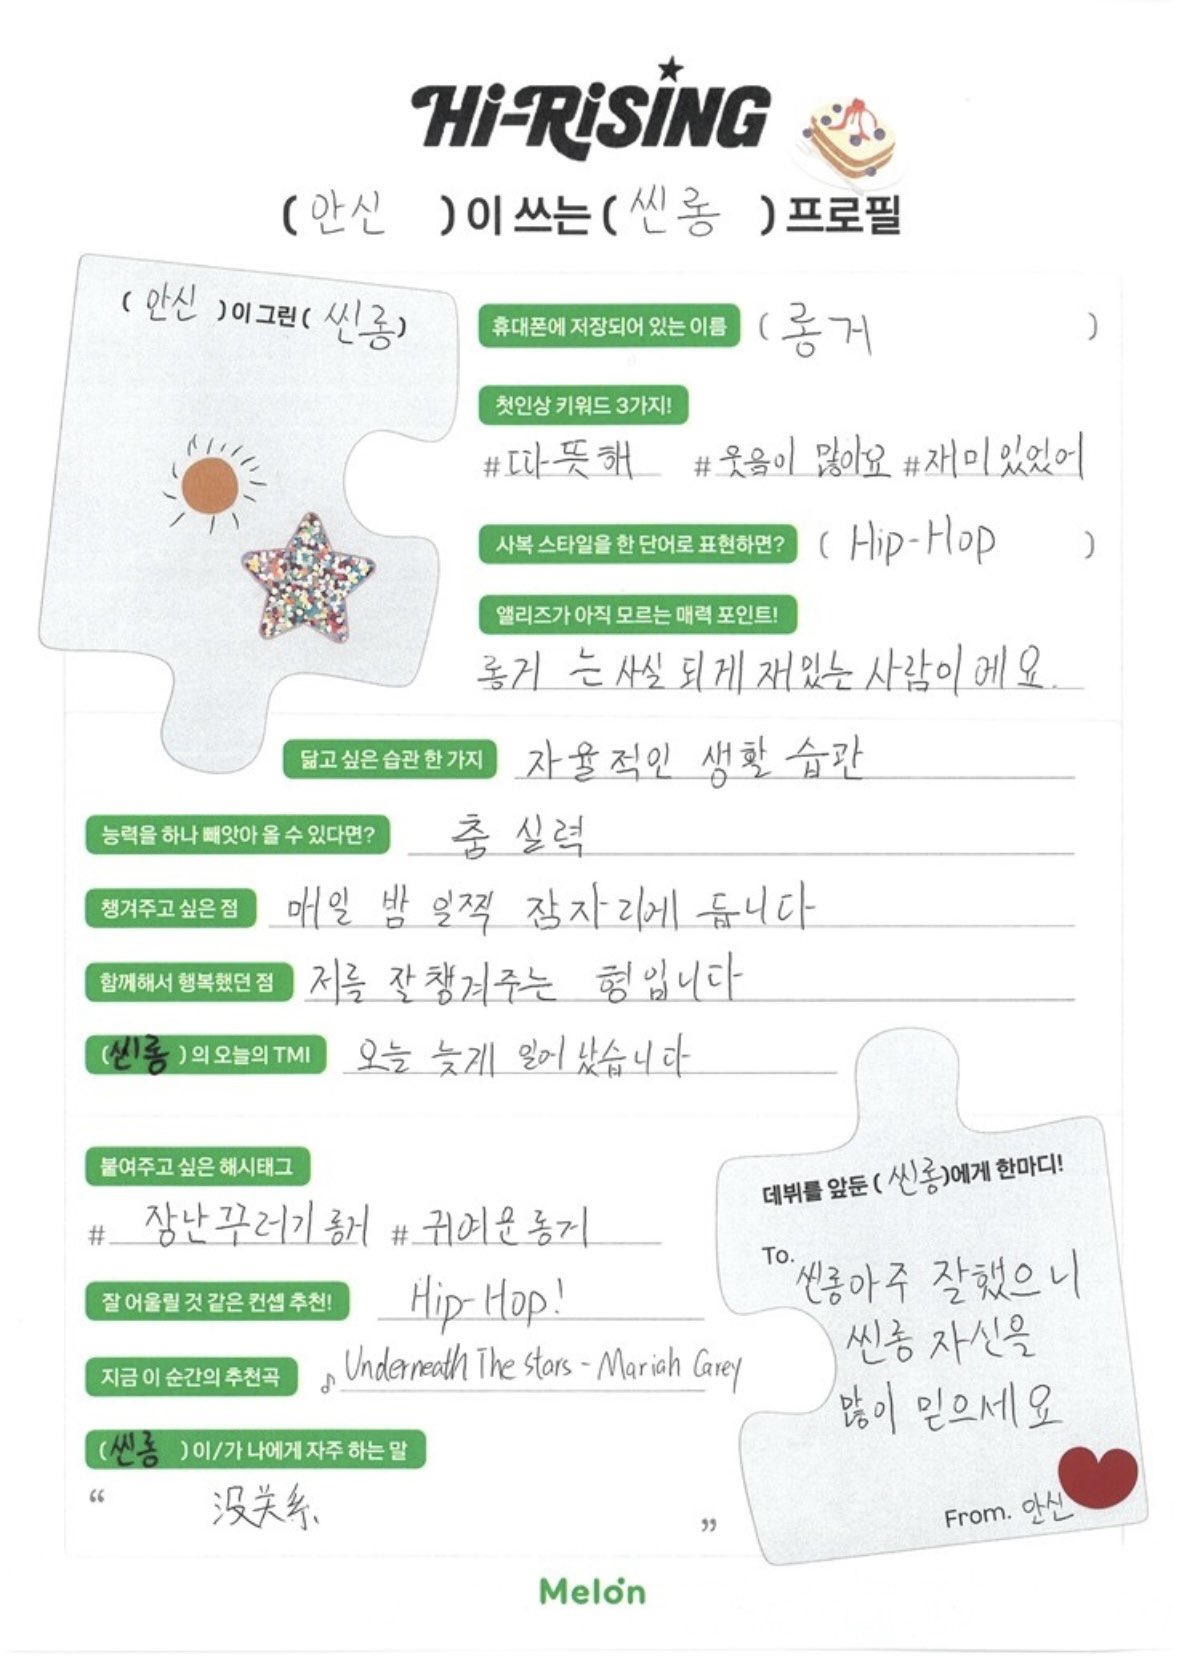 Hi-RiSiNG
( 안신 ) 이 쓰는 ( 씬롱 ) 프로필
( 안신 ) 이 그린 ( 씬롱 )
휴대폰에 저장되어 있는 이름 ( 롱거 )
첫인상 키워드 3가지!
#따뜻해 #웃음이 많아요 #재미있었어
사복 스타일을 한 단어로 표현하면? ( Hip-Hop )
앨리즈가 아직 모르는 매력 포인트!
롱거 는 사실 되게 재있는 사람이에요.
닮고 싶은 습관 한 가지 자율적인 생활 습관
능력을 하나 빼앗아 올 수 있다면? 춤 실력
챙겨주고 싶은 점 매일 밤 일찍 잠자리에 듭니다
함께해서 행복했던 점 저를 잘 챙겨주는 형입니다
(씬롱 ) 의 오늘의 TMI 오늘 늦게 일어났습니다
붙여주고 싶은 해시태그
# 장난꾸러기 롱거 # 귀여운 롱거
잘 어울릴 것 같은 컨셉 추천! Hip-Hop!
지금 이 순간의 추천곡 ♪ Underneath The Stars - Mariah Carey
(씬롱 ) 이/가 나에게 자주 하는 말
“ 没关系 ”
데뷔를 앞둔 ( 씬롱 )에게 한마디!
To. 씬롱아주 잘했으니
씬롱 자신을
많이 믿으세요
From. 안신
Melon